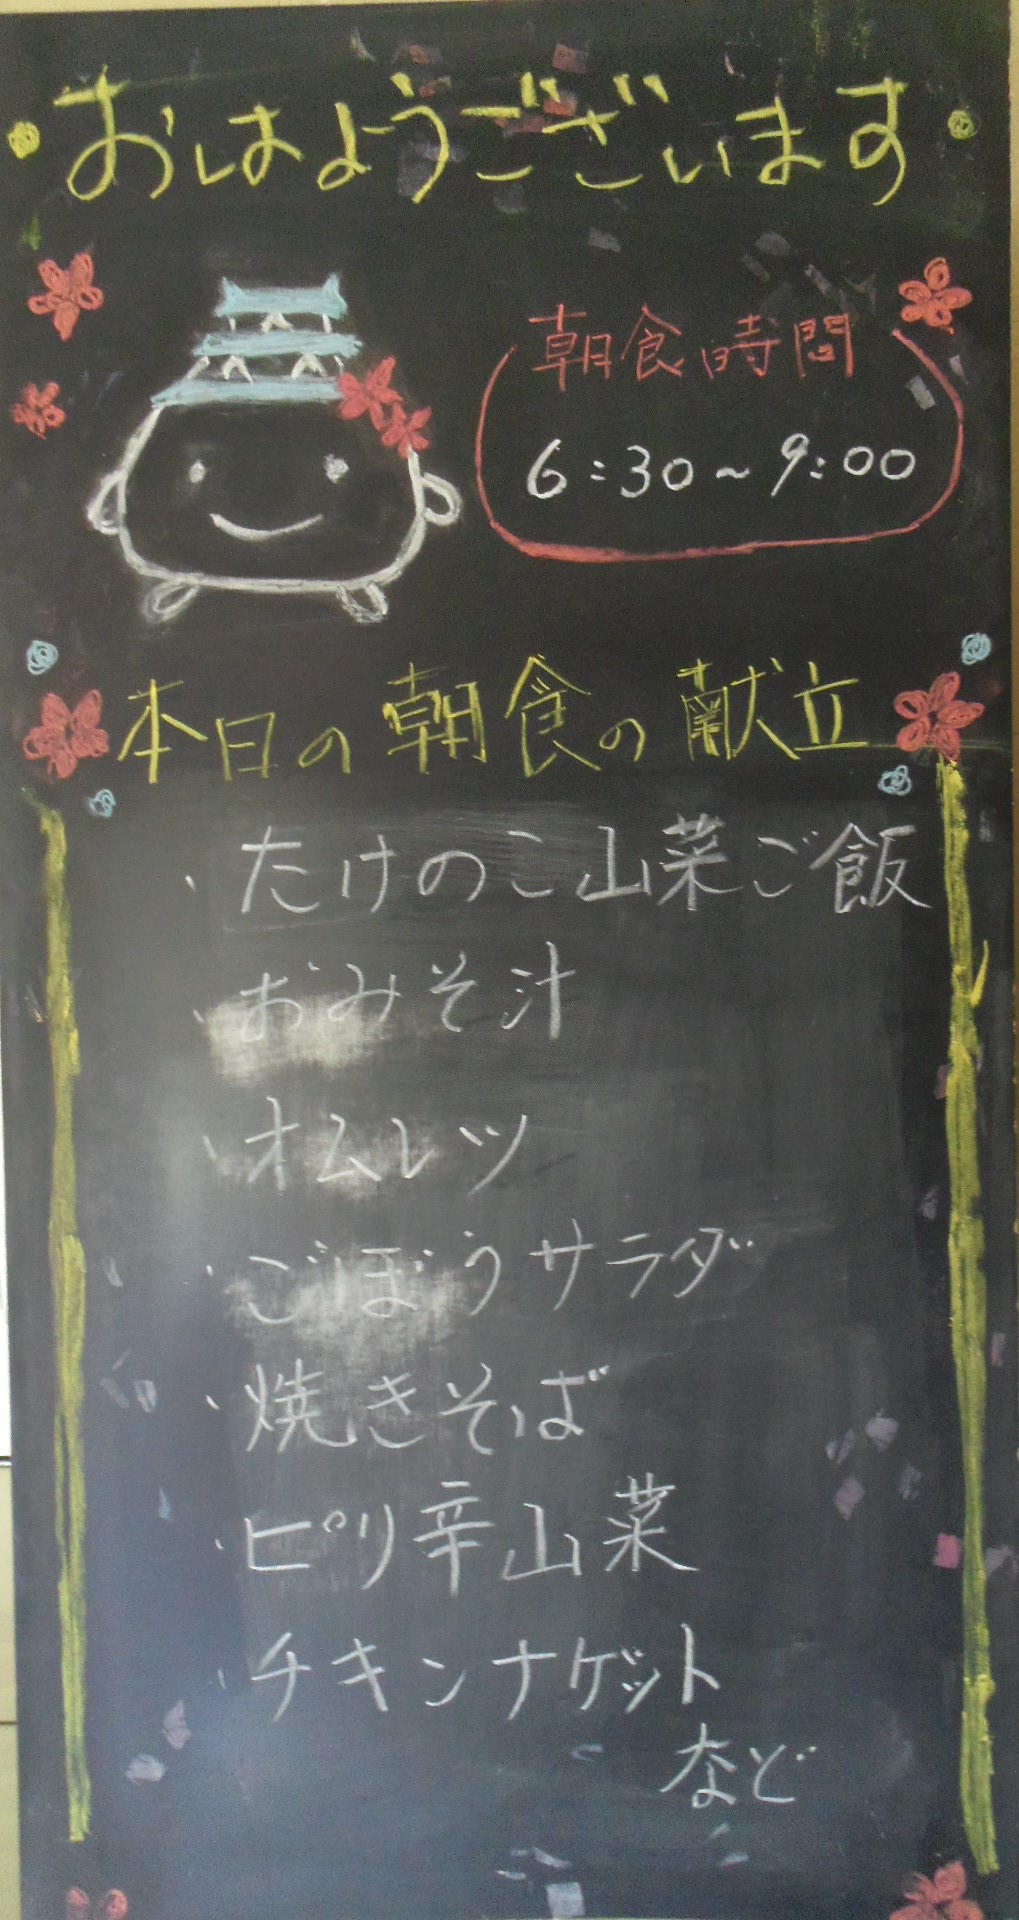 おはようございます
朝食時間
6:30~9:00
本日の朝食の献立
・たけのこ山菜ご飯
・おみそ汁
・オムレツ
・ごぼうサラダ
・焼きそば
・ピリ辛山菜
・チキンナゲット
など